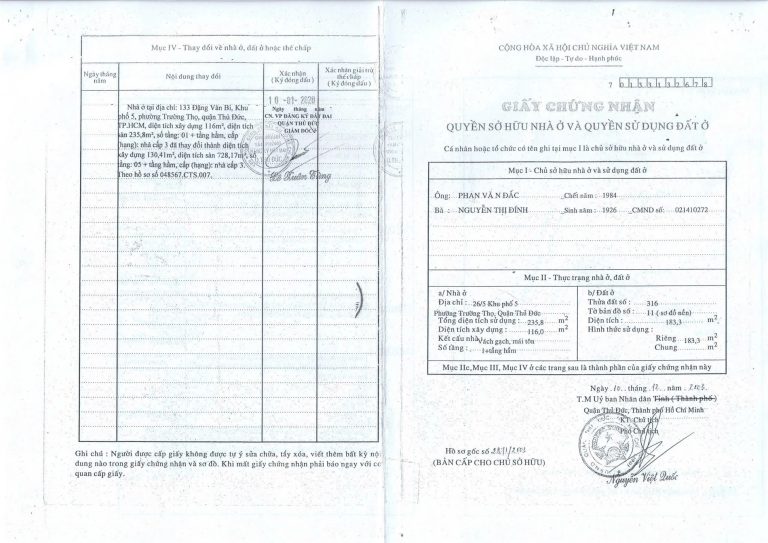 Mục IV - Thay đổi về nhà ở, đất ở hoặc thế chấp
Ngày tháng năm
Nội dung thay đổi
Xác nhận
(Ký đóng dấu)
Xác nhận giải trừ thế chấp
(Ký đóng dấu)
10-01-2020
Ngày tháng năm
CN. VP ĐĂNG KÝ ĐẤT ĐAI
QUẬN THỦ ĐỨC
GIÁM ĐỐC
Nhà ở tại địa chỉ: 133 Đặng Văn Bi, Khu
phố 5, phường Trường Thọ, quận Thủ Đức,
TP.HCM, diện tích xây dựng 116m², diện tích
sàn 235,8m², số tầng: 01 + tầng hầm, cấp
(hạng): nhà cấp 3 đã thay đổi thành diện tích
xây dựng 130,41m², diện tích sàn 728,17m², số
tầng: 05 + tầng hầm, cấp (hạng): nhà cấp 3.
Theo hồ sơ số 048567.CTS.007.
Ghi chú : Người được cấp giấy không được tự ý sửa chữa, tẩy xóa, viết thêm bất kỳ nội
dung nào trong giấy chứng nhận và sơ đồ. Khi mất giấy chứng nhận phải báo ngay với cơ
quan cấp giấy.
CỘNG HÒA XÃ HỘI CHỦ NGHĨA VIỆT NAM
Độc lập - Tự do - Hạnh phúc
GIẤY CHỨNG NHẬN
QUYỀN SỞ HỮU NHÀ Ở VÀ QUYỀN SỬ DỤNG ĐẤT Ở
Cá nhân hoặc tổ chức có tên ghi tại mục I là chủ sở hữu nhà ở và sử dụng đất ở
Mục I - Chủ sở hữu nhà ở và sử dụng đất ở
Ông: PHAN VĂN ĐẮC Chết năm : 1984
Bà : NGUYỄN THỊ ĐÍNH Sinh năm : 1926 CMND số: 021410272
Mục II - Thực trạng nhà ở, đất ở
a/ Nhà ở
Địa chỉ : 26/5 Khu phố 5
Phường Trường Thọ, Quận Thủ Đức
Tổng diện tích sử dụng : 235,8 m2
Diện tích xây dựng : 116,0 m2
Kết cấu nhà : Vách gạch, mái tôn
Số tầng : 1+tầng hầm
b/ Đất ở
Thửa đất số : 316
Tờ bản đồ số : 11 ( sơ đồ nền)
Diện tích : 183,3 m2
Hình thức sử dụng :
Riêng 183,3 m2
Chung m2
Mục IIc, Mục III, Mục IV ở các trang sau là thành phần của giấy chứng nhận này
Ngày 10 tháng 12 năm 2003
T.M Uỷ ban Nhân dân Tỉnh ( Thành phố )
Quận Thủ Đức, Thành phố Hồ Chí Minh
KT. Chủ tịch
Phó Chủ tịch
Hồ sơ gốc số
(BẢN CẤP CHO CHỦ SỞ HỮU)
Nguyễn Việt Quốc